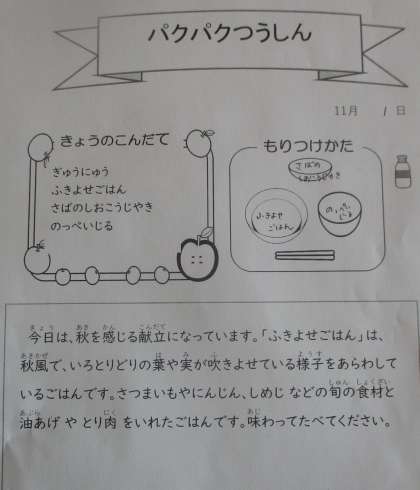 パクパクつうしん
11月　/　日
きょうのこんだて
ぎゅうにゅう
ふきよせごはん
さばのしおこうじやき
のっぺいじる
もりつけかた
さばの
しおこうじやき
ふきよせ
ごはん
のっぺい
じる
今日は、秋を感じる献立になっています。「ふきよせごはん」は、
秋風で、いろとりどりの葉や実が吹きよせている様子をあらわして
いるごはんです。さつまいもやにんじん、しめじ などの旬の食材と
油あげ や とり肉 をいれたごはんです。味わってたべてください。